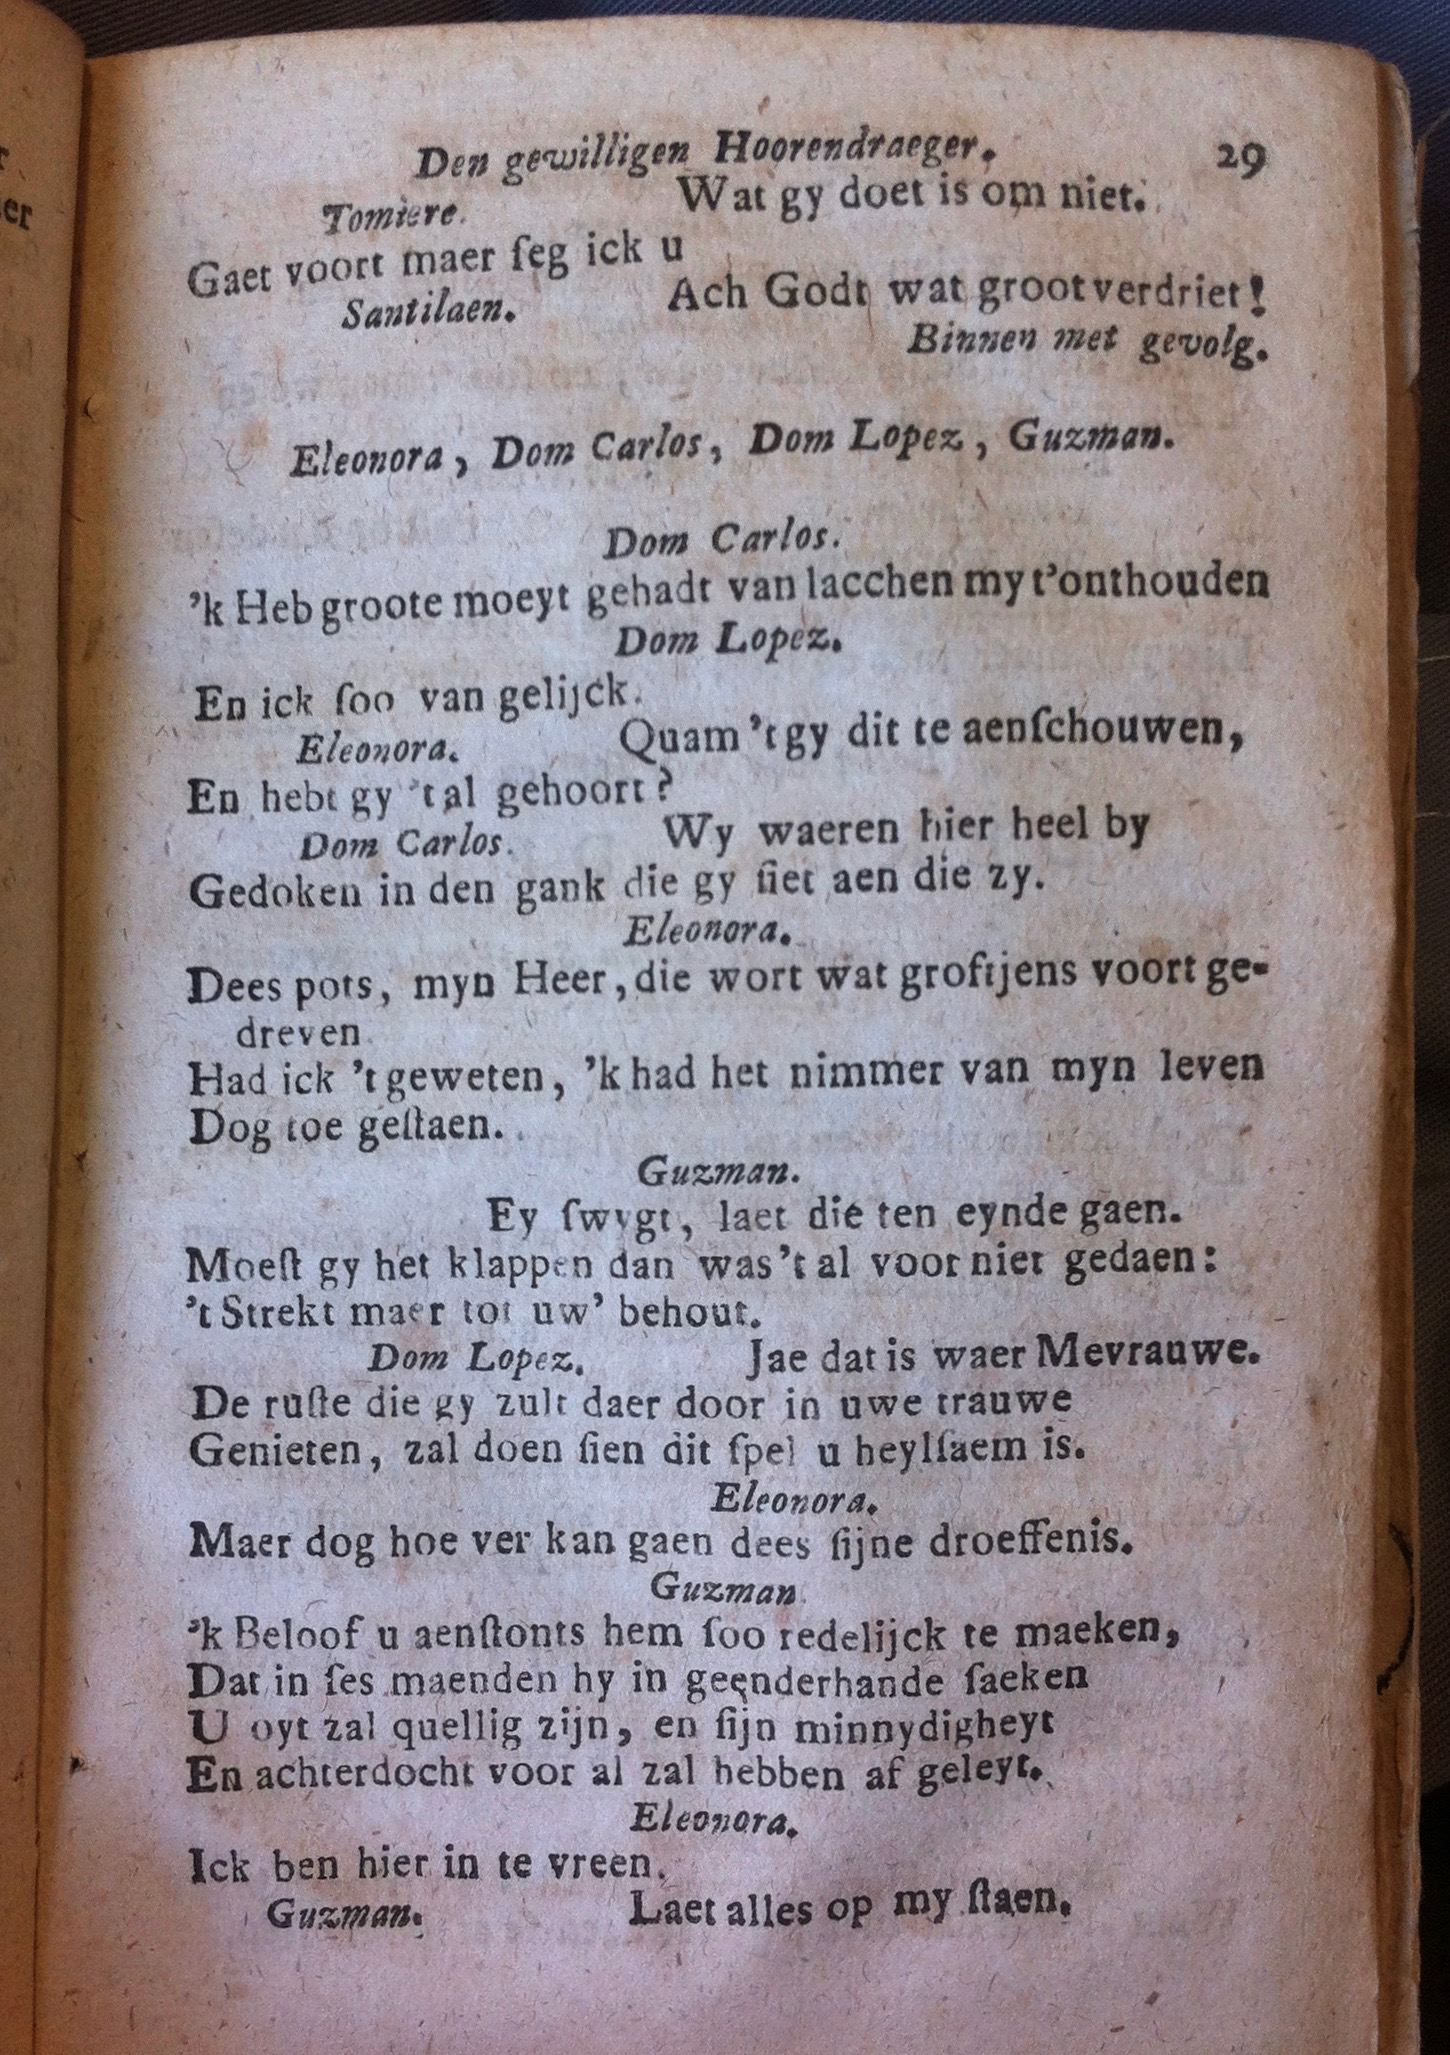 Den gewilligen Hoorendraeger. 29
Tomiere. Wat gy doet is om niet.
Gaet voort maer ſeg ick u
Santilaen. Ach Godt wat groot verdriet!
Binnen met gevolg.
Eleonora, Dom Carlos, Dom Lopez, Guzman.
Dom Carlos.
’k Heb groote moeyt gehadt van lacchen my t’onthouden
Dom Lopez.
En ick ſoo van gelijck.
Eleonora. Quam ’t gy dit te aenſchouwen,
En hebt gy ’t al gehoort?
Dom Carlos. Wy waeren hier heel by
Gedoken in den gank die gy ſiet aen die zy.
Eleonora.
Dees pots, myn Heer, die wort wat groftjens voort ge-
dreven
Had ick ’t geweten, ’k had het nimmer van myn leven
Dog toe geſtaen.
Guzman.
Ey ſwygt, laet die ten eynde gaen.
Moeſt gy het klappen dan was ’t al voor niet gedaen:
’t Strekt maer tot uw’ behout.
Dom Lopez. Jae dat is waer Mevrauwe.
De ruſte die gy zult daer door in uwe trauwe
Genieten, zal doen ſien dit ſpel u heylſaem is.
Eleonora.
Maer dog hoe ver kan gaen dees ſijne droeffenis.
Guzman.
’k Beloof u aenſtonts hem ſoo redelijck te maeken,
Dat in ſes maenden hy in geenderhande ſaeken
U oyt zal quellig zijn, en ſijn minnydigheyt
En achterdocht voor al zal hebben af geleyt.
Eleonora.
Ick ben hier in te vreen.
Guzman. Laet alles op my ſtaen.